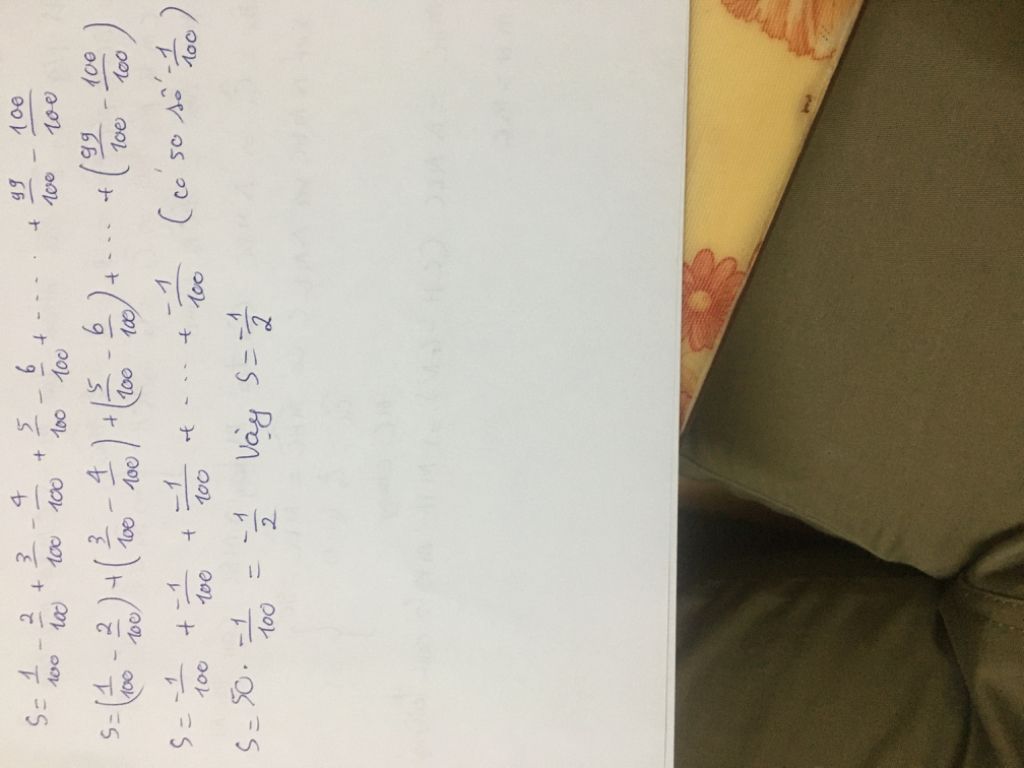 S = 1/100 - 2/100 + 3/100 - 4/100 + 5/100 - 6/100 + ..... + 99/100 - 100/100
S = (1/100 - 2/100) + (3/100 - 4/100) + (5/100 - 6/100) + ... + (99/100 - 100/100)
S = -1/100 + -1/100 + -1/100 + .... + -1/100 (có 50 số -1/100)
S = 50 . -1/100 = -1/2 Vậy S = -1/2